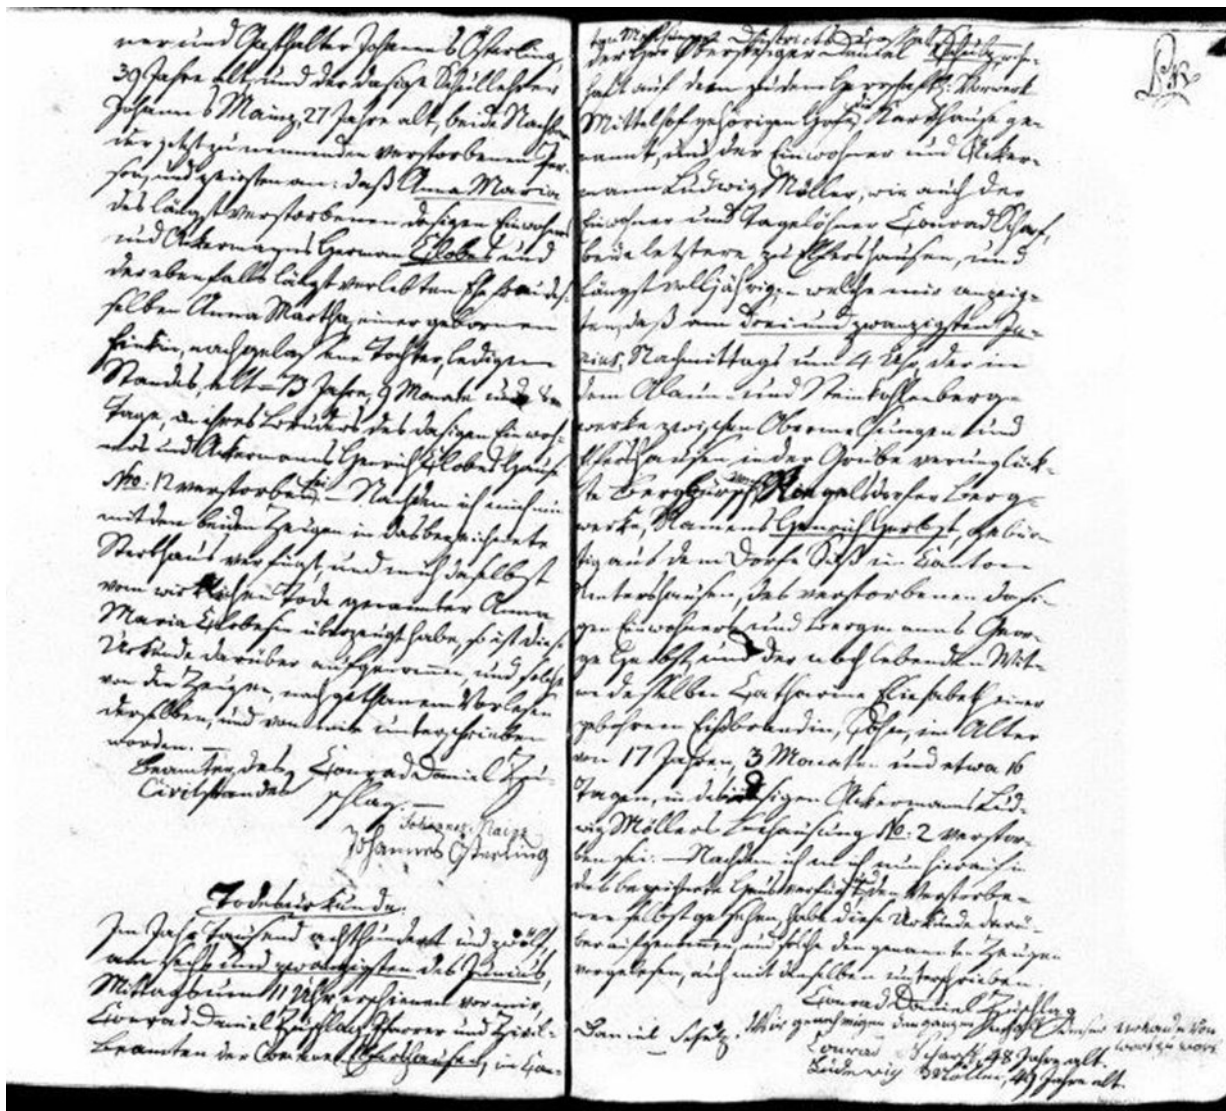 ner und Gasthalter Johannes Österling,
39 Jahre alt, und der dasige Schullehrer
Johannes Mainz, 27 Jahre alt, beide Nachbarn
der jetzt zu nennenden verstorbenen Per-
son, und zeigten an: daß Anna Maria
des längst verstorbenen dasigen Einwohners
und Ackermanns Herman Clobes und
der ebenfalls längst verlebten Ehefrau des-
selben Anna Martha, einer gebornen
nachgelassene Tochter, ledigen
Standes, alt 73 Jahre, 9 Monate und
Tage, in ihres Bruders des dasigen Einwoh-
ners und Ackermanns Henrich Clobes Hause
No: 12 verstorben sei. – Nachdem ich mich nun
mit den beiden Zeugen in das bezeichnete
Sterbhaus verfügt, und mich daselbst
vom wirklichen Tode genannter Anna
Maria Clobesin überzeugt habe, so ist diese
Urkunde darüber aufgenommen, und solche
von den Zeugen, nach gethanem Vorlesen
derselben, und von mir unterschrieben
worden. –
Beamter des Conrad Daniel Zu-
Civilstandes schlag. –
Johannes Mainz
Johannes Österling
Todesurkunde.
Im Jahr tausend achthundert und zwölf,
am sechs und zwanzigsten des Junius,
Mittags um 11 Uhr, erschienen vor mir,
Conrad Daniel Zuschlag Pfarrer und Civil-
Beamten der Commune Elfershausen, im Can-
ton Melsungen, Districts Cassel
der Herr Obersteiger Daniel Schulz, wohn-
haft auf dem zu dem Herrschaftl: Vorwerk
Mittelhof gehörigen Hofe, die Karthause ge-
nannt, und der Einwohner und Acker-
mann Ludwig Möller, wie auch der
Einwohner und Tagelöhner Conrad Scharf,
beide letztere zu Elfershausen, und
längst volljährig, welche mir anzeig-
ten, daß am drei und zwanzigsten Ju-
nius, Nachmittags um 4 Uhr, der in
dem Alaun- und Steinkohlenberg-
werke zwischen Obermelsungen und
Elfershausen in der Grube verunglück-
te Bergbursch vom Ringelsdorfer Berg-
werke, Namens Henrich Herbst, gebür-
tig aus dem Dorfe Süß im Canton
Nentershausen, des verstorbenen dasi-
gen Einwohners und Bergmanns Geor-
ge Herbst und der noch lebenden Wit-
we desselben Catharine Eliesabeth einer
gebohrnen Sohn, im Alter
von 17 Jahren, 3 Monaten und etwa 16
Tagen, in des hiesigen Ackermanns Lud-
wig Möllers Behausung No: 2 verstor-
ben sei. – Nachdem ich mich nun hierauf in
das bezeichnete Haus verfügt, den Verstorbe-
nen selbst gesehen, habe diese Urkunde darü-
ber aufgenommen, und solche den genannten Zeugen
vorgelesen, auch mit denselben unterschrieben.
Conrad Daniel Zuschlag
Daniel Schulz. Wir genehmigen den ganzen Inhalt dieser Urkunde von
wort zu wort
Conrad Scharf, 48 Jahre alt.
Ludewig Möller, 49 Jahre alt.